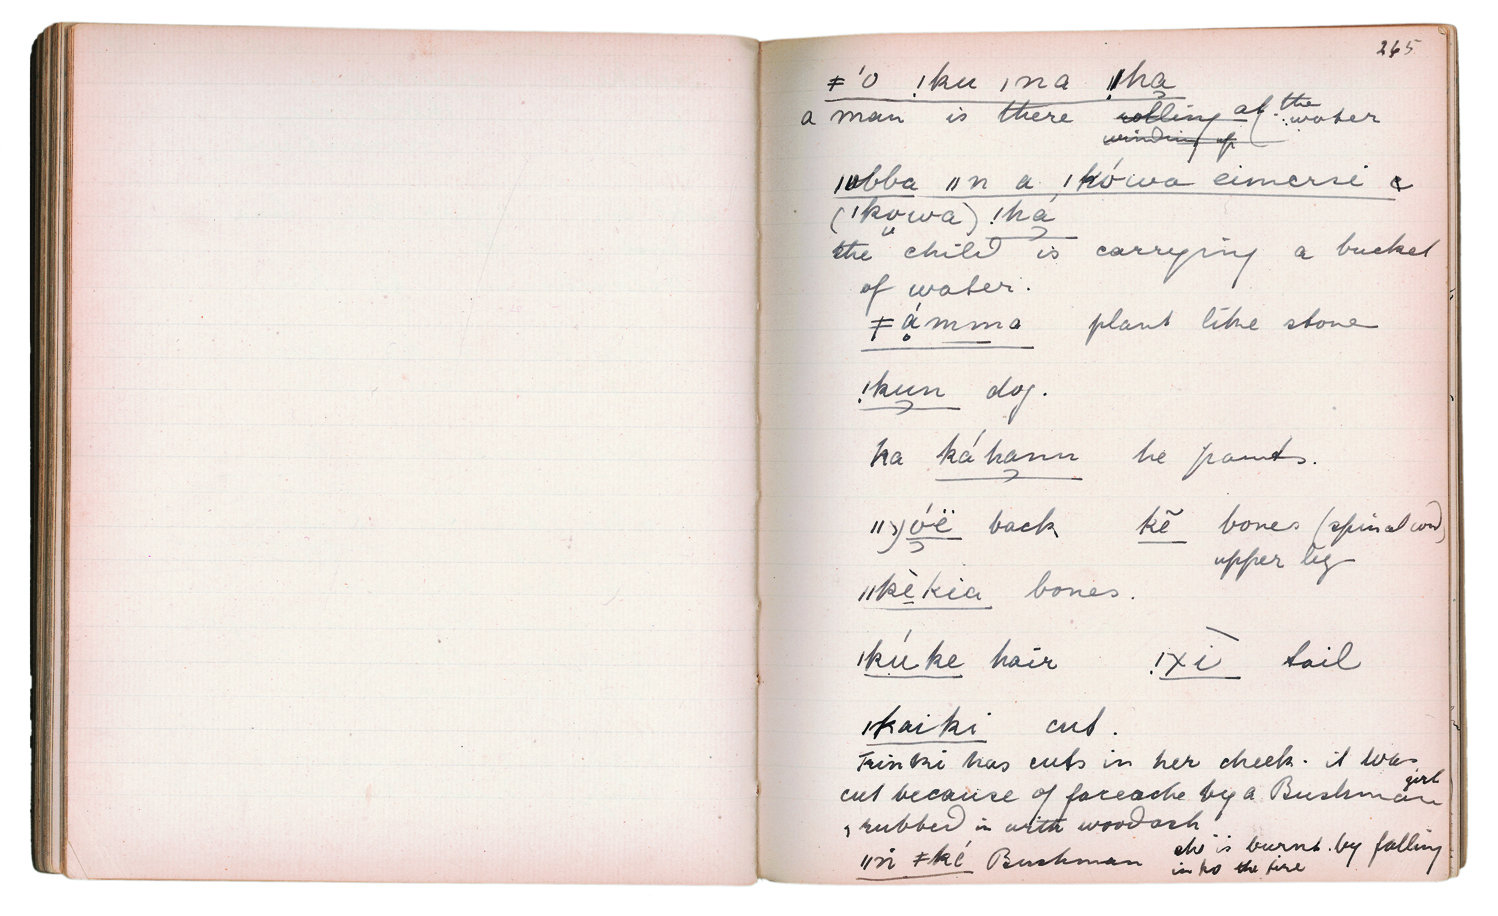 265
ǂ'o !ku ǀna ǁha
a man is there rolling at the water
winding up
ǀobba ǁn a ǃkówa eimersi e
(ǀkowa) !há
the child is carrying a bucket
of water.
ǂámma plant like stone
!kun dog.
ka káhann he pants.
ǁχóë back kẽ bones (spinal cord)
upper leg
ǁkèkia bones.
ǀkúke hair !χī tail
ǀkaiki cut.
Kinki has cuts in her cheek. it was
cut because of faceache by a Bushman girl
, rubbed in with woodash
ǁn̄ ǂké Bushman she is burnt by falling
into the fire